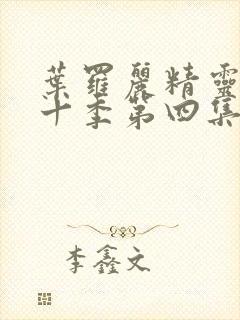 葉羅麗精靈
十季第四集
李鑫文